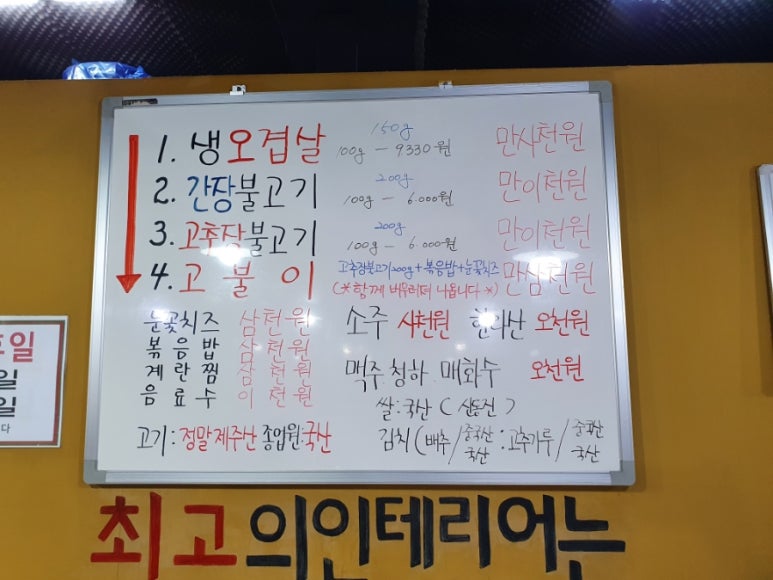 150g
1. 생오겹살 100g - 9.330원 만사천원
200g
2. 간장불고기 100g - 6.000원 만이천원
200g
3. 고추장불고기 100g - 6.000원 만이천원
4. 고불이 고추장불고기200g+볶음밥+눈꽃치즈 만삼천원
(*함께 버무려져 나옵니다*)
눈꽃치즈 삼천원 소주 사천원 한라산 오천원
볶음밥 삼천원
계란찜 삼천원 맥주 청하 매화수 오천원
음료수 이천원
쌀:국산 (신동진)
고기:정말제주산 종업원:국산 김치(배추/중국산 국산:고춧가루/중국산 국산
최고의인테리어는
일
일
일
다